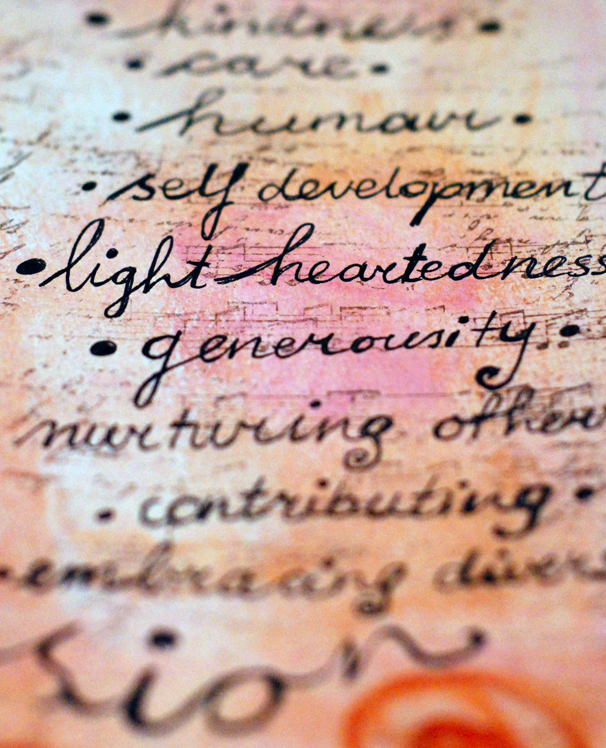 • kindness •
• care •
• humour •
• self development
• light-heartedness
• generousity •
nurturing other
• contributing •
• embracing divers
sion